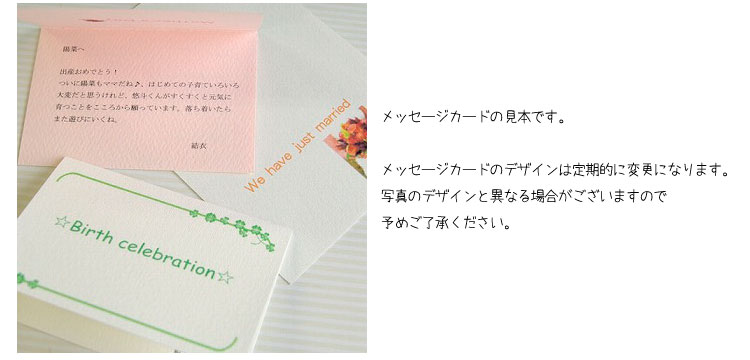 陽菜へ
出産おめでとう!
ついに陽菜もママだね♪、はじめての子育ていろいろ
大変だと思うけれど、悠斗くんがすくすくと元気に
育つことをこころから願っています。落ち着いたら
また遊びにいくね。
結衣
We have just married
☆Birth celebration☆
メッセージカードの見本です。
メッセージカードのデザインは定期的に変更になります。
写真のデザインと異なる場合がございますので
予めご了承ください。